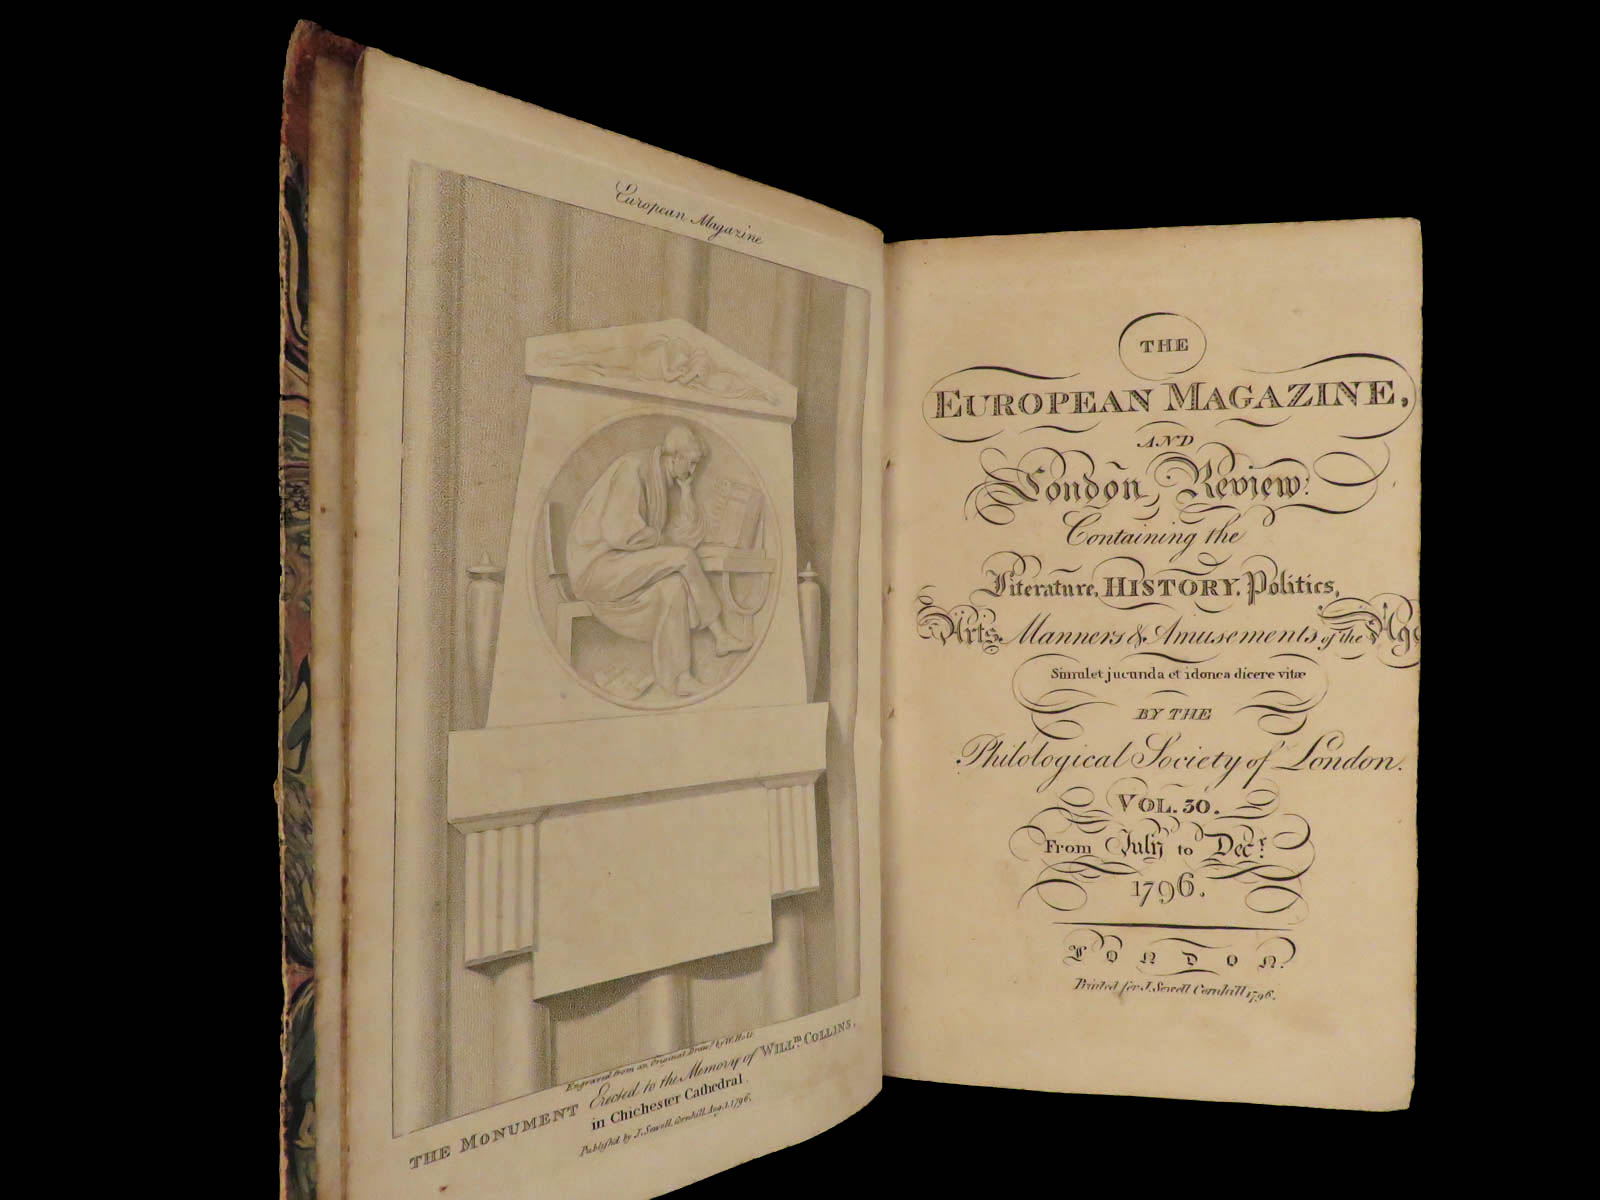 European Magazine
Engraved from an Original Draw.g by W. Holl
THE MONUMENT Erected to the Memory of WILL.m COLLINS,
in Chichester Cathedral.
Publish'd by J. Sewell, Cornhill, Aug. 1. 1796.
THE
EUROPEAN MAGAZINE,
AND
London Review:
Containing the
Literature, HISTORY, Politics,
Arts, Manners & Amusements of the Age
Simul et jucunda et idonea dicere vitæ
BY THE
Philological Society of London.
VOL. 30.
From July to Dec.r
1796.
LONDON.
Printed for J. Sewell Cornhill 1796.